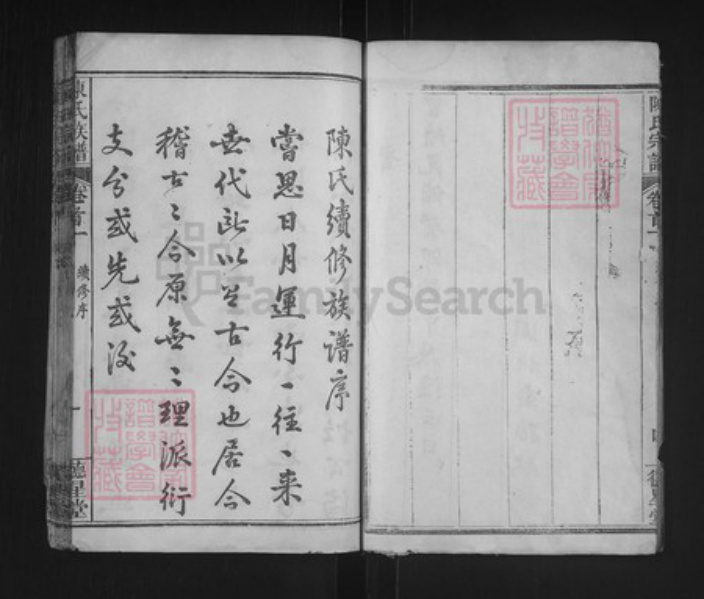 陳氏宗譜
卷首一
德星堂
陳氏續修族譜序
嘗思日月運行一往一来
世代所以呈古今也居今
稽古〻今原無〻理派衍
支分或先或後
陳氏族譜
卷首一
續修序
一
德星堂
譜學會
收藏
譜學會
收藏
FamilySearch